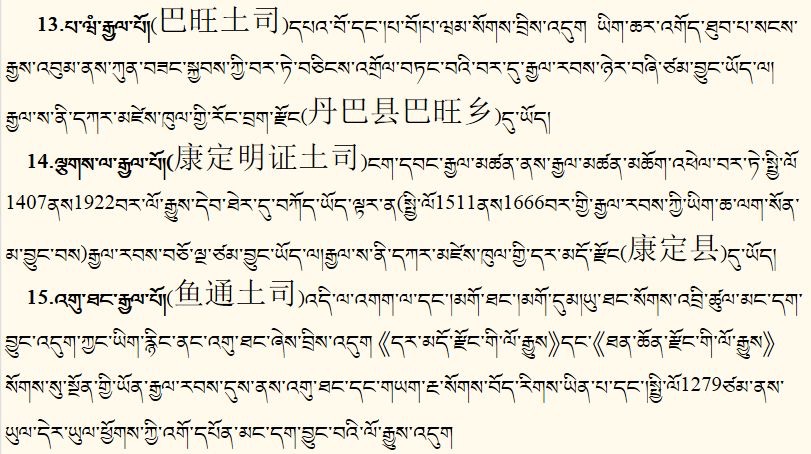 13.པ་ཝཾ་རྒྱལ་པོ།(巴旺土司)དཔའ་བོ་དང་།པ་བོ།པ་ཝམ་སོགས་བྲིས་འདུག ཡིག་ཆར་འགོད་ཐུབ་པ་སངས་
རྒྱས་འབུམ་ནས་ཀུན་བཟང་སྐྱབས་ཀྱི་བར་ཏེ་བཅིངས་འགྲོལ་བཏང་བའི་བར་དུ་རྒྱལ་རབས་ཉེར་བཞི་ཙམ་བྱུང་ཡོད་ལ།
རྒྱལ་ས་ནི་དཀར་མཛེས་ཁུལ་གྱི་རོང་བྲག་རྫོང(丹巴县巴旺乡)དུ་ཡོད།
14.ལྕགས་ལ་རྒྱལ་པོ།(康定明证土司)ངག་དབང་རྒྱལ་མཚན་ནས་རྒྱལ་མཚན་མཆོག་འཕེལ་བར་ཏེ་སྤྱི་ལོ་
1407ནས1922བར་ལོ་རྒྱུས་དེབ་ཐེར་དུ་བཀོད་ཡོད་ལྟར་ན(སྤྱི་ལོ1511ནས1666བར་གྱི་རྒྱལ་རབས་ཀྱི་ཡིག་ཆ་ལག་སོན་
མ་བྱུང་བས)རྒྱལ་རབས་བཅོ་ལྔ་ཙམ་བྱུང་ཡོད་ལ།རྒྱལ་ས་ནི་དཀར་མཛེས་ཁུལ་གྱི་དར་མདོ་རྫོང(康定县)དུ་ཡོད།
15.འགུ་ཐང་རྒྱལ་པོ།(鱼通土司)འདི་ལ་འགག་ལ་དང་།མགོ་ཐང་།མགོ་དུམ།ཡུ་ཐང་སོགས་འབྲི་ཚུལ་མང་དག་
བྱུང་འདུག་ཀྱང་ཡིག་རྙིང་ནང་འགུ་ཐང་ཞེས་བྲིས་འདུག《དར་མདོ་རྫོང་གི་ལོ་རྒྱུས》དང་《ཐན་ཆོན་རྫོང་གི་ལོ་རྒྱུས》
སོགས་སུ་སྔོན་གྱི་ཡོན་རྒྱལ་རབས་དུས་ནས་འགུ་ཐང་དང་གཡག་རྔ་སོགས་བོད་རིགས་ཡིན་པ་དང་།སྤྱི་ལོ1279ཙམ་ནས་
ཡུལ་དེར་ཡུལ་ཕྱོགས་ཀྱི་འགོ་དཔོན་མང་དག་བྱུང་བའི་ལོ་རྒྱུས་འདུག